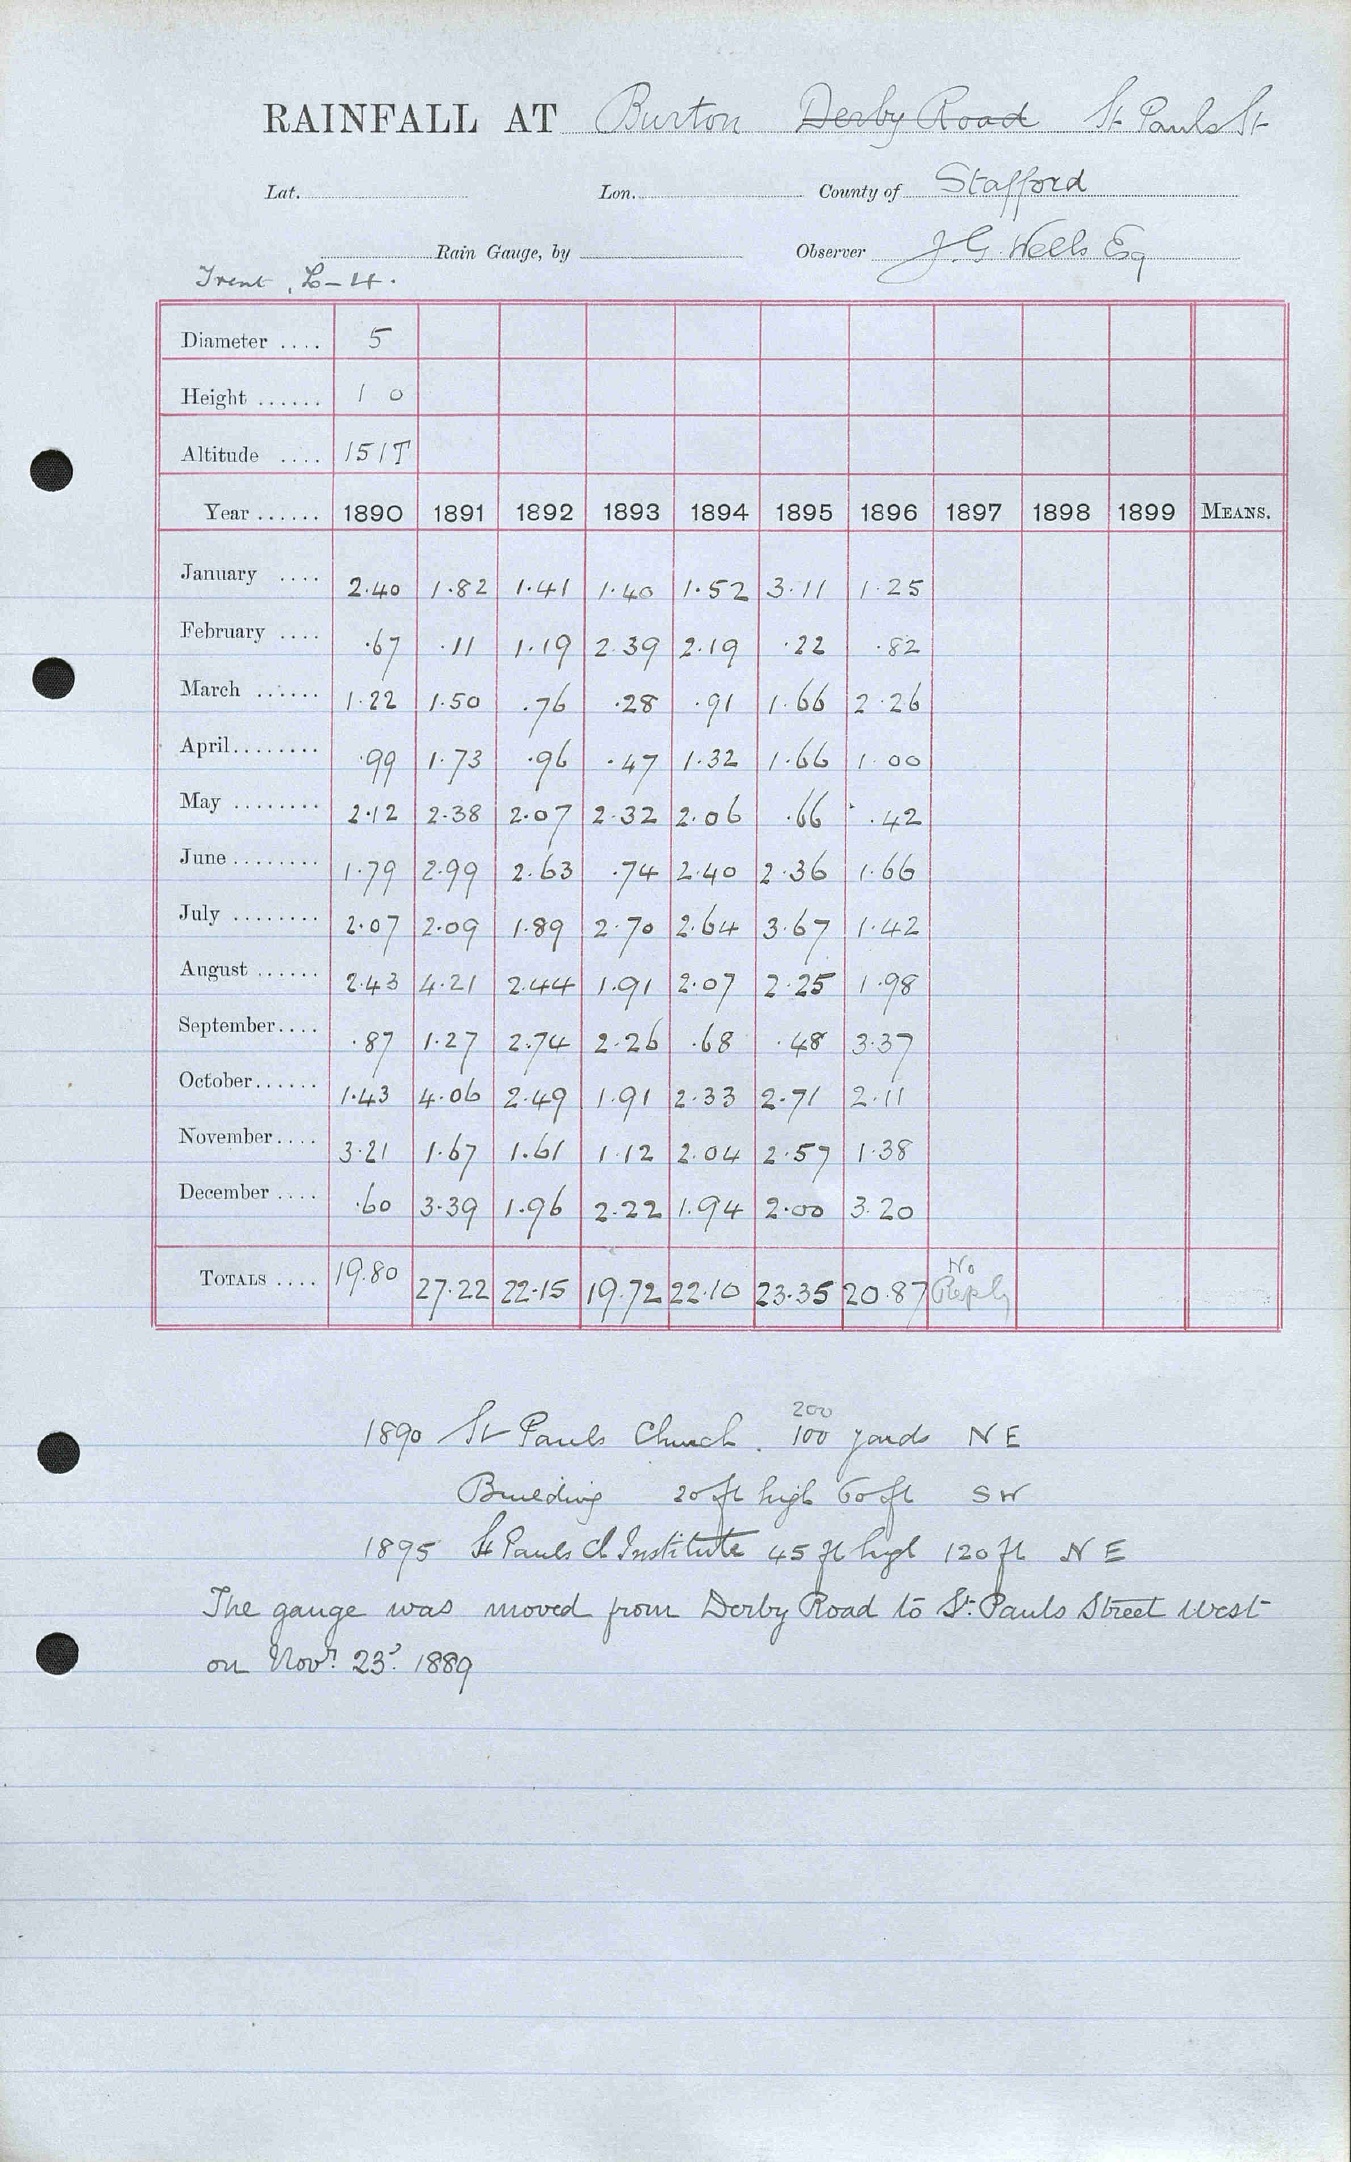 RAINFALL AT Burton Derby Road St Pauls St
Lat. Lon. County of Stafford
Rain Gauge, by Observer J. G. Wells Esq
Trent, L-4.
Diameter .... 5
Height ...... 1 0
Altitude .... 151T
Year ...... 1890 1891 1892 1893 1894 1895 1896 1897 1898 1899 MEANS.
January .... 2.40 1.82 1.41 1.40 1.52 3.11 1.25
February .... .67 .11 1.19 2.39 2.19 .22 .82
March ...... 1.22 1.50 .76 .28 .91 1.66 2.26
April........ .99 1.73 .96 .47 1.32 1.66 1.00
May ........ 2.12 2.38 2.07 2.32 2.06 .66 .42
June ........ 1.79 2.99 2.63 .74 2.40 2.36 1.66
July ........ 2.07 2.09 1.89 2.70 2.64 3.67 1.42
August ...... 2.43 4.21 2.44 1.91 2.07 2.25 1.98
September.... .87 1.27 2.74 2.26 .68 .48 3.37
October...... 1.43 4.06 2.49 1.91 2.33 2.71 2.11
November.... 3.21 1.67 1.61 1.12 2.04 2.57 1.38
December .... .60 3.39 1.96 2.22 1.94 2.00 3.20
TOTALS .... 19.80 27.22 22.15 19.72 22.10 23.35 20.87 No Reply
200
1890 St Pauls Church. 100 yards NE
Building 20 ft high 60 ft SW
1895 St Pauls Institute 45 ft high 120 ft NE
The gauge was moved from Derby Road to St. Pauls Street West
on Novr. 23d. 1889